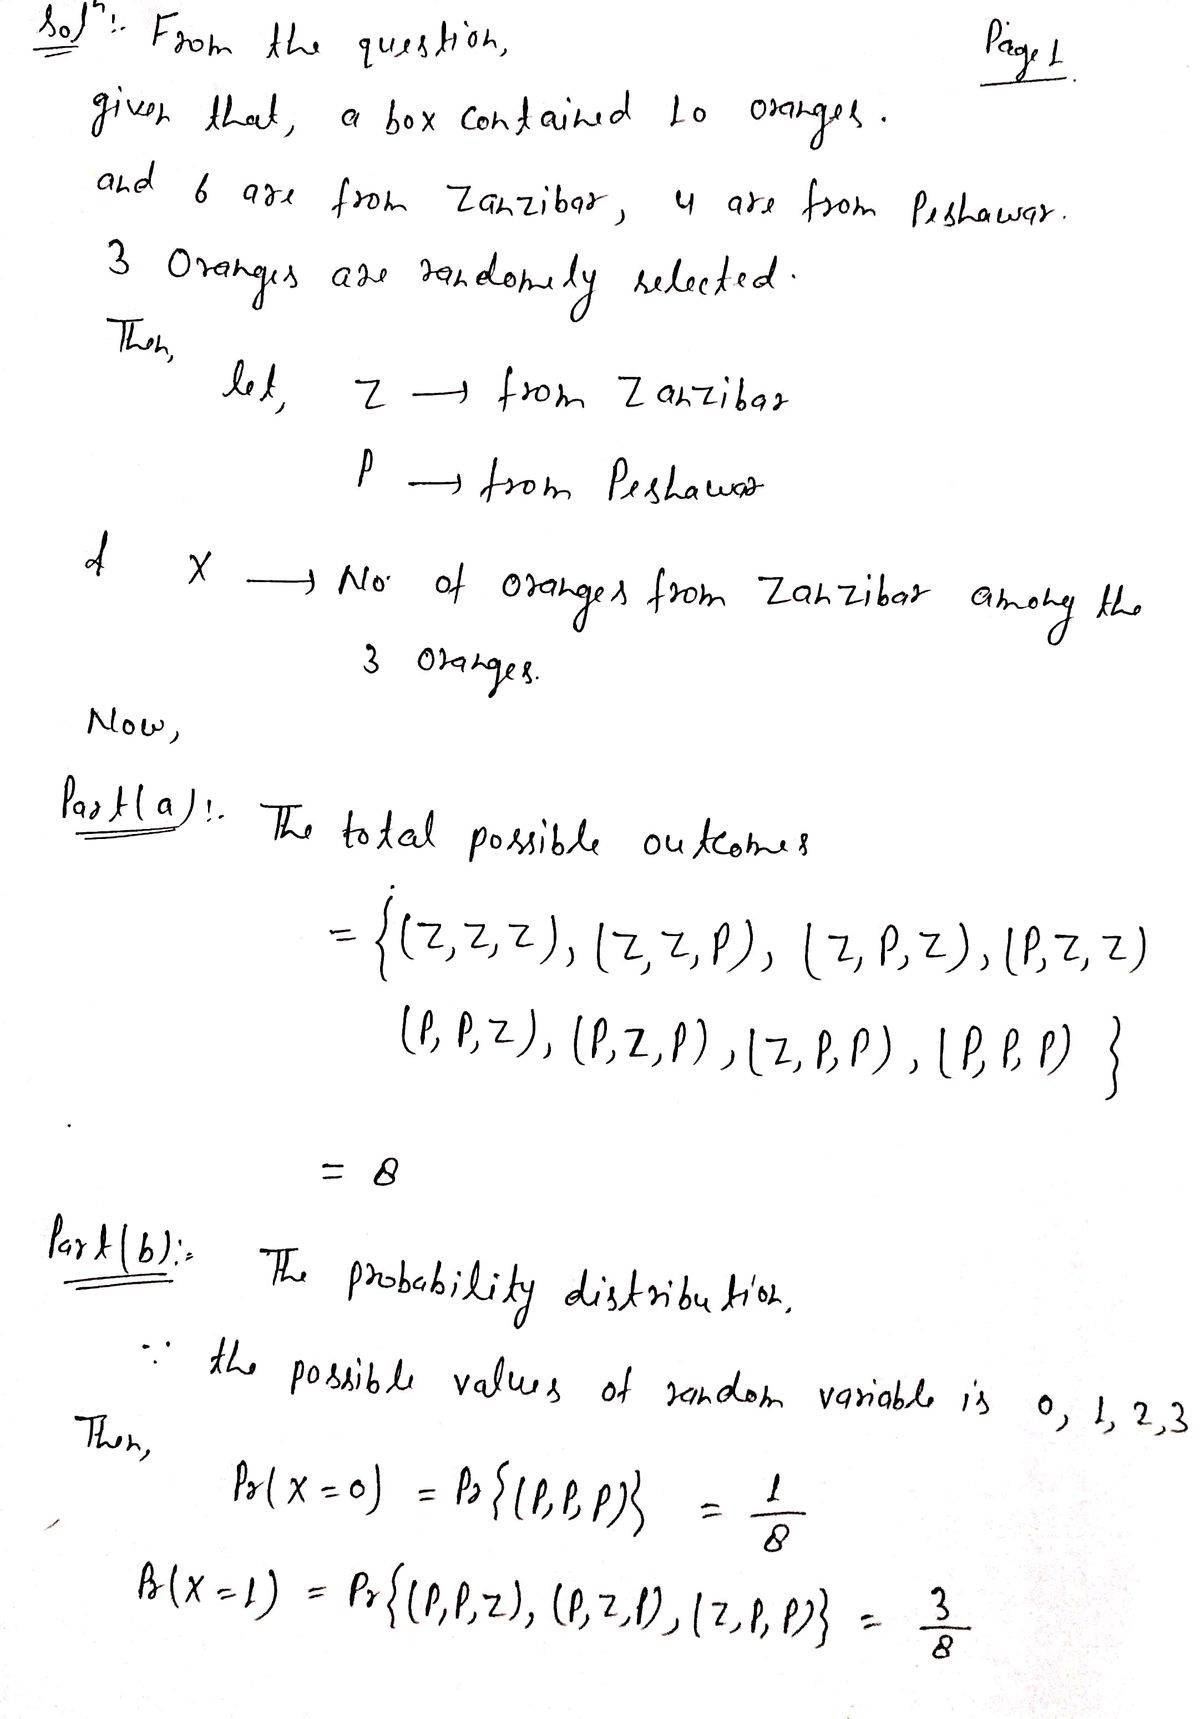 Solⁿ:- From the question,
Page 1.
given that, a box contained 10 oranges.
and 6 are from Zanzibar, 4 are from Peshawar.
3 Oranges are randomely selected.
Then,
let, Z → from Zanzibar
P → from Peshawar
& X → No. of oranges from Zanzibar among the
3 oranges.
Now,
Part(a):- The total possible outcomes
= {(Z,Z,Z), (Z,Z,P), (Z,P,Z), (P,Z,Z)
(P,P,Z), (P,Z,P), (Z,P,P), (P,P,P) }
= 8
Part(b):- The probability distribution.
∵ the possible values of random variable is 0, 1, 2, 3
Then,
Pr(X=0) = Pr{(P,P,P)} = 1/8
Pr(X=1) = Pr{(P,P,Z), (P,Z,P), (Z,P,P)} = 3/8